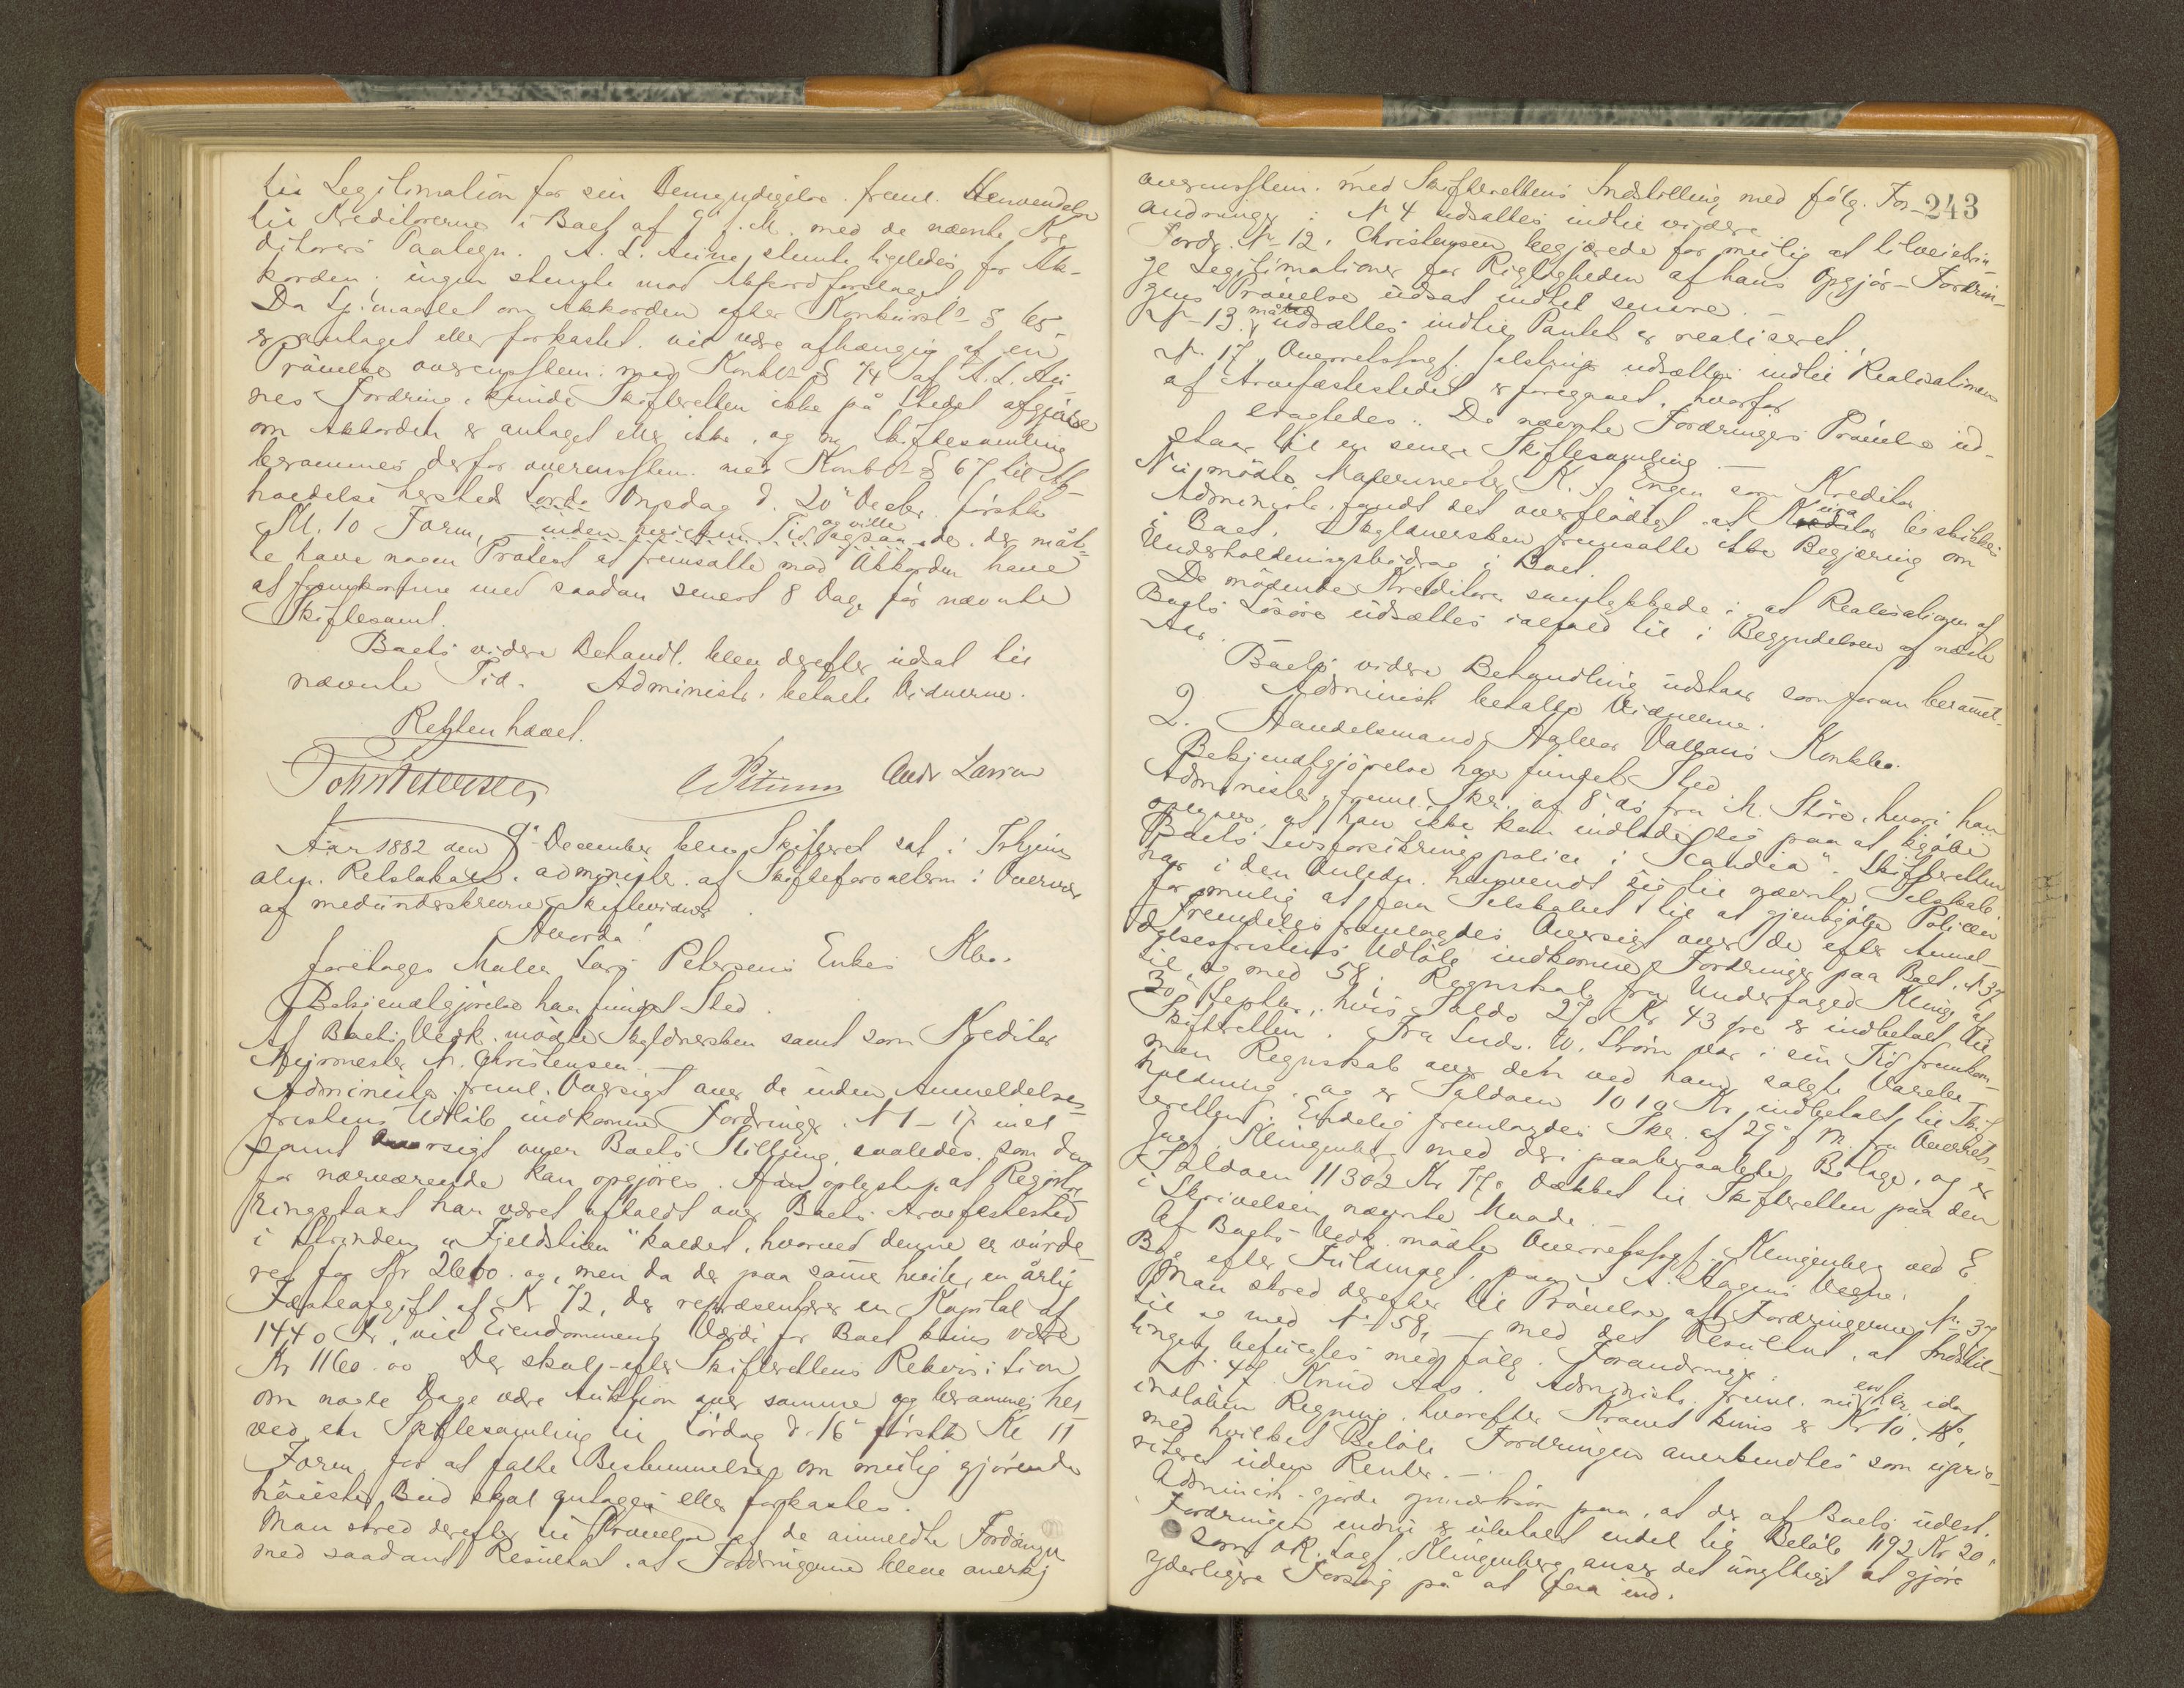 til Legitimation for sin Bemyndigelse freml. Henvendelse
til Kreditorerne i Boet af 9 f. M. med de nævnte Kre
ditorers Paategn. A. L. Aune stemte ligeledes for Ak-
korden; ingen stemte mod Akkordforslaget.
Da Spmaalet om Akkorden efter Konkursl. § 65
er antaget eller forkastet vil være afhængig af en
Prøvelse overensstem. med Konkl. § 74 af A. L. Au-
nes Fordring, kunde Skifteretten ikke på Stedet afgjøre
om Akkorden er antaget eller ikke, og ny Skiftesamling
berammes derfor overensstem. med Konkl. § 67 til Af-
holdelse hersted Onsdag d. 20de Decbr. førstk
Kl. 10 Form, inden hvilken Tid og ville de, der måt-
te have nogen Protest at fremsætte mod Akkorden have
at fremkomme med saadan senest 8 Dage før nævnte
Skiftesaml.
Boets videre Behandl. blev derefter udsat til
nævnte Tid. Administr. betalte Vidnerne.
Retten hævet.
Andr Larsen
Aar 1882 den 9de December blev Skifteret sat i Trhjems
alm. Retslokale, administr. af Skifteforvalteren i Overvær
af medunderskrevne Skiftevidner
Hvorda!
foretoges Maler Lars Petersens Enkes Kbo.
Bekjendtgjørelse har fundet Sted.
Af Boets Vedk. mødte Skyldnersken samt som Kreditor
N. Christensen
Administr. freml. Oversigt over de inden Anmeldelses-
fristens Udløb indkomne Fordringer N 1 - 17 incl
samt Oversigt over Boets Stilling, saaledes som den
for nærværende kan opgjøres. Han oplyste, at Registre
ringstaxt har været afholdt over Boets Arvefæstested
i Strinden "Fjeldslien" kaldet, hvorved denne er vurde-
ret for Kr 2600.00, men da der paa samme hviler en årlig
Fæsteafgift af Kr 72, der repræsenterer en Kapital af
1440 Kr, vil Eiendommens Værdi for Boet kuns være
Kr 1160.00 Der skal efter Skifterettens Rekvisition
om nogle Dage være Auktion over samme og berammes her
ved en Skiftesamling til Lørdag d. 16de førstk Kl 11
Form, for at fatte Bestemmelse om mulig gjørende
høieste Bud skal antages eller forkastes.
Man skred derefter til Prøvelse af de anmeldte Fordringer
med saadant Resultat, at Fordringerne bleve anerkj
243
overensstem. med Skifterettens Indstilling med følg. For-
andringer: N 4 udsattes indtil videre
Fordr. N 12. Christensen begjærede for mulig at tilveiebrin-
ge Legitimationer for Rigtigheden af hans Opgjør - Fordrin-
gens Prøvelse udsat indtil senere.
N 13 måtte udsættes indtil Pantet er realiseret.
N. 17, Overretssagf. udsættes indtil Realisationen
af Arvefæstestedet er foregaaet, hvorfor
De nævnte Fordringers Prøvelse ud-
staar til en senere Skiftesamling. —
Nu mødte Malermester K. J. Engen som Kreditor
Administr. fandt det overflødigt at beskikkes
i Boet. Skyldnersken fremsatte ikke Begjæring om
Underholdningsbidrag i Boet.
De mødende Kreditorer samtykkede i, at Realisationen af
Boets Løsøre udsættes ialfald til i Begyndelsen af næste
Aar.
Boets videre Behandling udstaar som foran berammet.
Administr. betalte Vidnerne.
2. Handelsmand Halvor Konkbo.
Bekjendtgjørelse har fundet Sted
Administr. freml. Skr. af 8de ds fra M. Støre, hvori han
opgiver, at han ikke kan indlade sig paa at kjøbe
Boets Livsforsikringspolice i "Scandia". Skifteretten
har i den Anledn. henvendt sig til nævnte Selskab
for mulig at faa Selskabet til at gjenkjøbe Policen
Fremdeles fremlagdes Oversigt over de efter Anmel-
delsesfristens Udløb indkomne Fordringer paa Boet, N 37
til og med 58; Regnskab fra Underfoged Kling af
30 Septbr., hvis Saldo 270 Kr 43 øre er indbetalt til
Skifteretten. Fra Ludv. W. Strøm var i sin Tid fremkom-
men Regnskab over den ved ham solgte Varebe-
holdning, og er Saldoen 1010 Kr indbetalt til Skif-
teretten. Endelig fremlagdes Skr. af 29de f. M. fra Overrets-
sagf. Klingenberg med deri paaberaabte Bilage, og er
Saldoen 11302 Kr 17 ø dækket til Skifteretten paa den
i Skrivelsen nævnte Maade. —
Af Boets Vedk. mødte Overretssagf. Klingenberg ved E.
efter Fuldmagt, paa A. Hagens Vegne.
Man skred derefter til Prøvelse af Fordringerne N. 37
til og med N. 58, — med det Resultat, at Indstil-
lingen befulgtes med følg. Forandringer:
N. 47. Knud Aas. Administr. freml. nu en her idag
indløben Regning, hvorefter Kravet kuns er Kr 10.18,
med hvilket Beløb Fordringen anerkjendtes som uprio-
riteret uden Renter. —
Administr. gjorde opmærksom paa, at der af Boets udest.
Fordringer endnu er ubetalt endel til Beløb 1192 Kr 20,
som OR. Sagf. Klingenberg anser det unyttigt at gjøre
yderligere Forsøg på at faa ind.